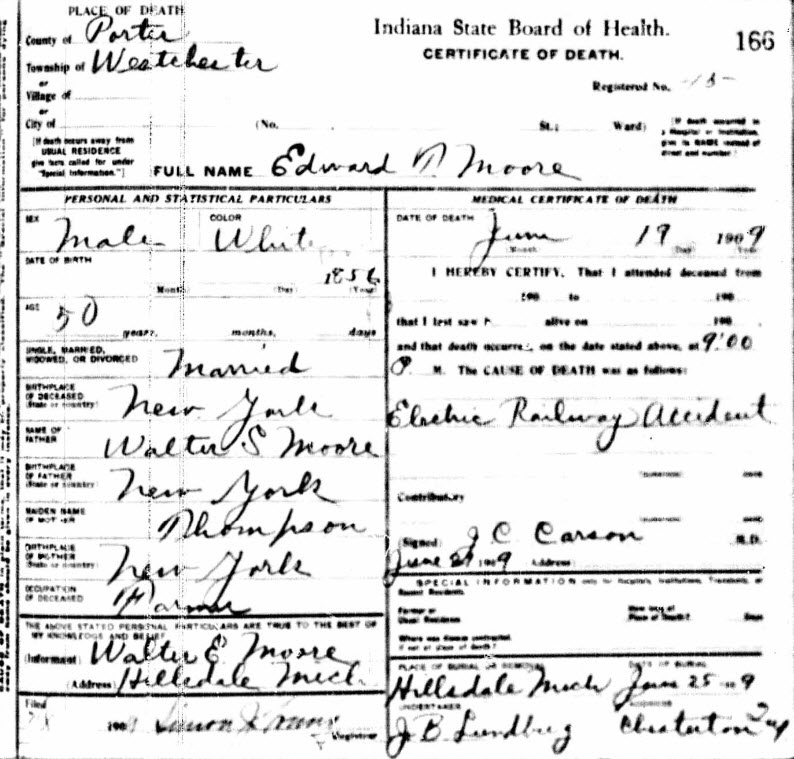 PLACE OF DEATH
County of Porter
Indiana State Board of Health.
CERTIFICATE OF DEATH.
166
Township of Westchester
or
Village of
Registered No. 15
or
City of (No. St.; Ward)
[If death occurs away from USUAL RESIDENCE give facts called for under "Special Information."]
[If death occurred in a Hospital or Institution, give its NAME instead of street and number.]
FULL NAME Edward T. Moore
PERSONAL AND STATISTICAL PARTICULARS
SEX Male
COLOR White
DATE OF BIRTH
1856
(Month) (Day) (Year)
AGE 50
years, months, days
SINGLE, MARRIED, WIDOWED, OR DIVORCED Married
BIRTHPLACE OF DECEASED (State or country) New York
NAME OF FATHER Walter S Moore
BIRTHPLACE OF FATHER (State or country) New York
MAIDEN NAME OF MOTHER Thompson
BIRTHPLACE OF MOTHER (State or country) New York
OCCUPATION OF DECEASED Farmer
THE ABOVE STATED PERSONAL PARTICULARS ARE TRUE TO THE BEST OF MY KNOWLEDGE AND BELIEF
(Informant) Walter E Moore
(Address) Hillsdale Mich
Filed
190 Registrar
MEDICAL CERTIFICATE OF DEATH
DATE OF DEATH June 19 1909
(Month) (Day) (Year)
I HEREBY CERTIFY, That I attended deceased from
190 to 190
that I last saw h alive on 190
and that death occurred, on the date stated above, at 9:00
P. M. The CAUSE OF DEATH was as follows:
Electric Railway Accident
(DURATION) DAYS
Contributory
(DURATION) DAYS
(Signed) J. C Carson M.D.
June 1909 (Address)
SPECIAL INFORMATION only for Hospitals, Institutions, Transients, or Recent Residents.
Former or Usual Residence
How long at Place of Death? Days
Where was disease contracted, if not at place of death?
PLACE OF BURIAL OR REMOVAL Hillsdale Mich
DATE OF BURIAL June 25 1909
UNDERTAKER J B Lundberg
ADDRESS Chesterton Ind